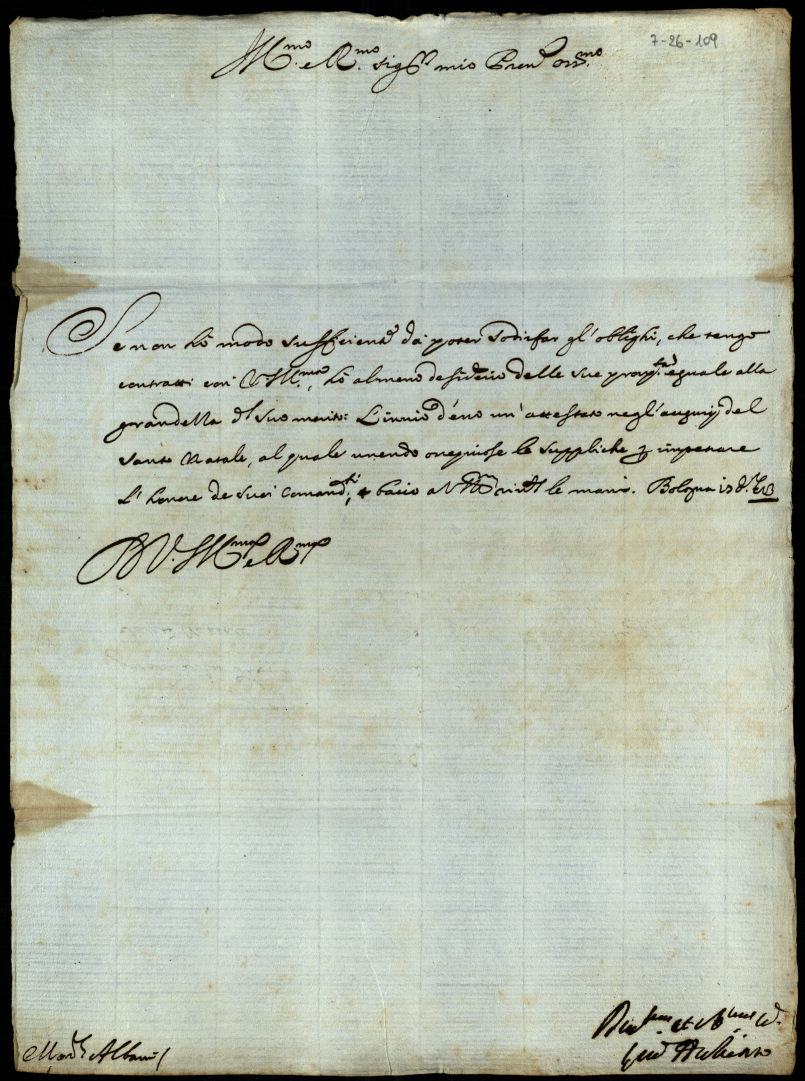 7-26-109
Ill.mo e R.mo Sig.r mio Pren. oss.mo
Se non hò modo sufficiente di poter sodisfar gl'oblighi, che tengo
contratti con V.S. Ill.ma, hò almeno desiderio delle sue prosp.tà eguale alla
grandezza del suo merito: L'inuio d'eno un'attestato negl'augurij del
Santo Natale, al quale unendo ossequiose le suppliche per impetrare
l'honore de suoi Comand.ti, bacio a V.S. Ill.ma le mani. Bologna
D V.S. Ill.ma e R.ma
Mons.r Albani